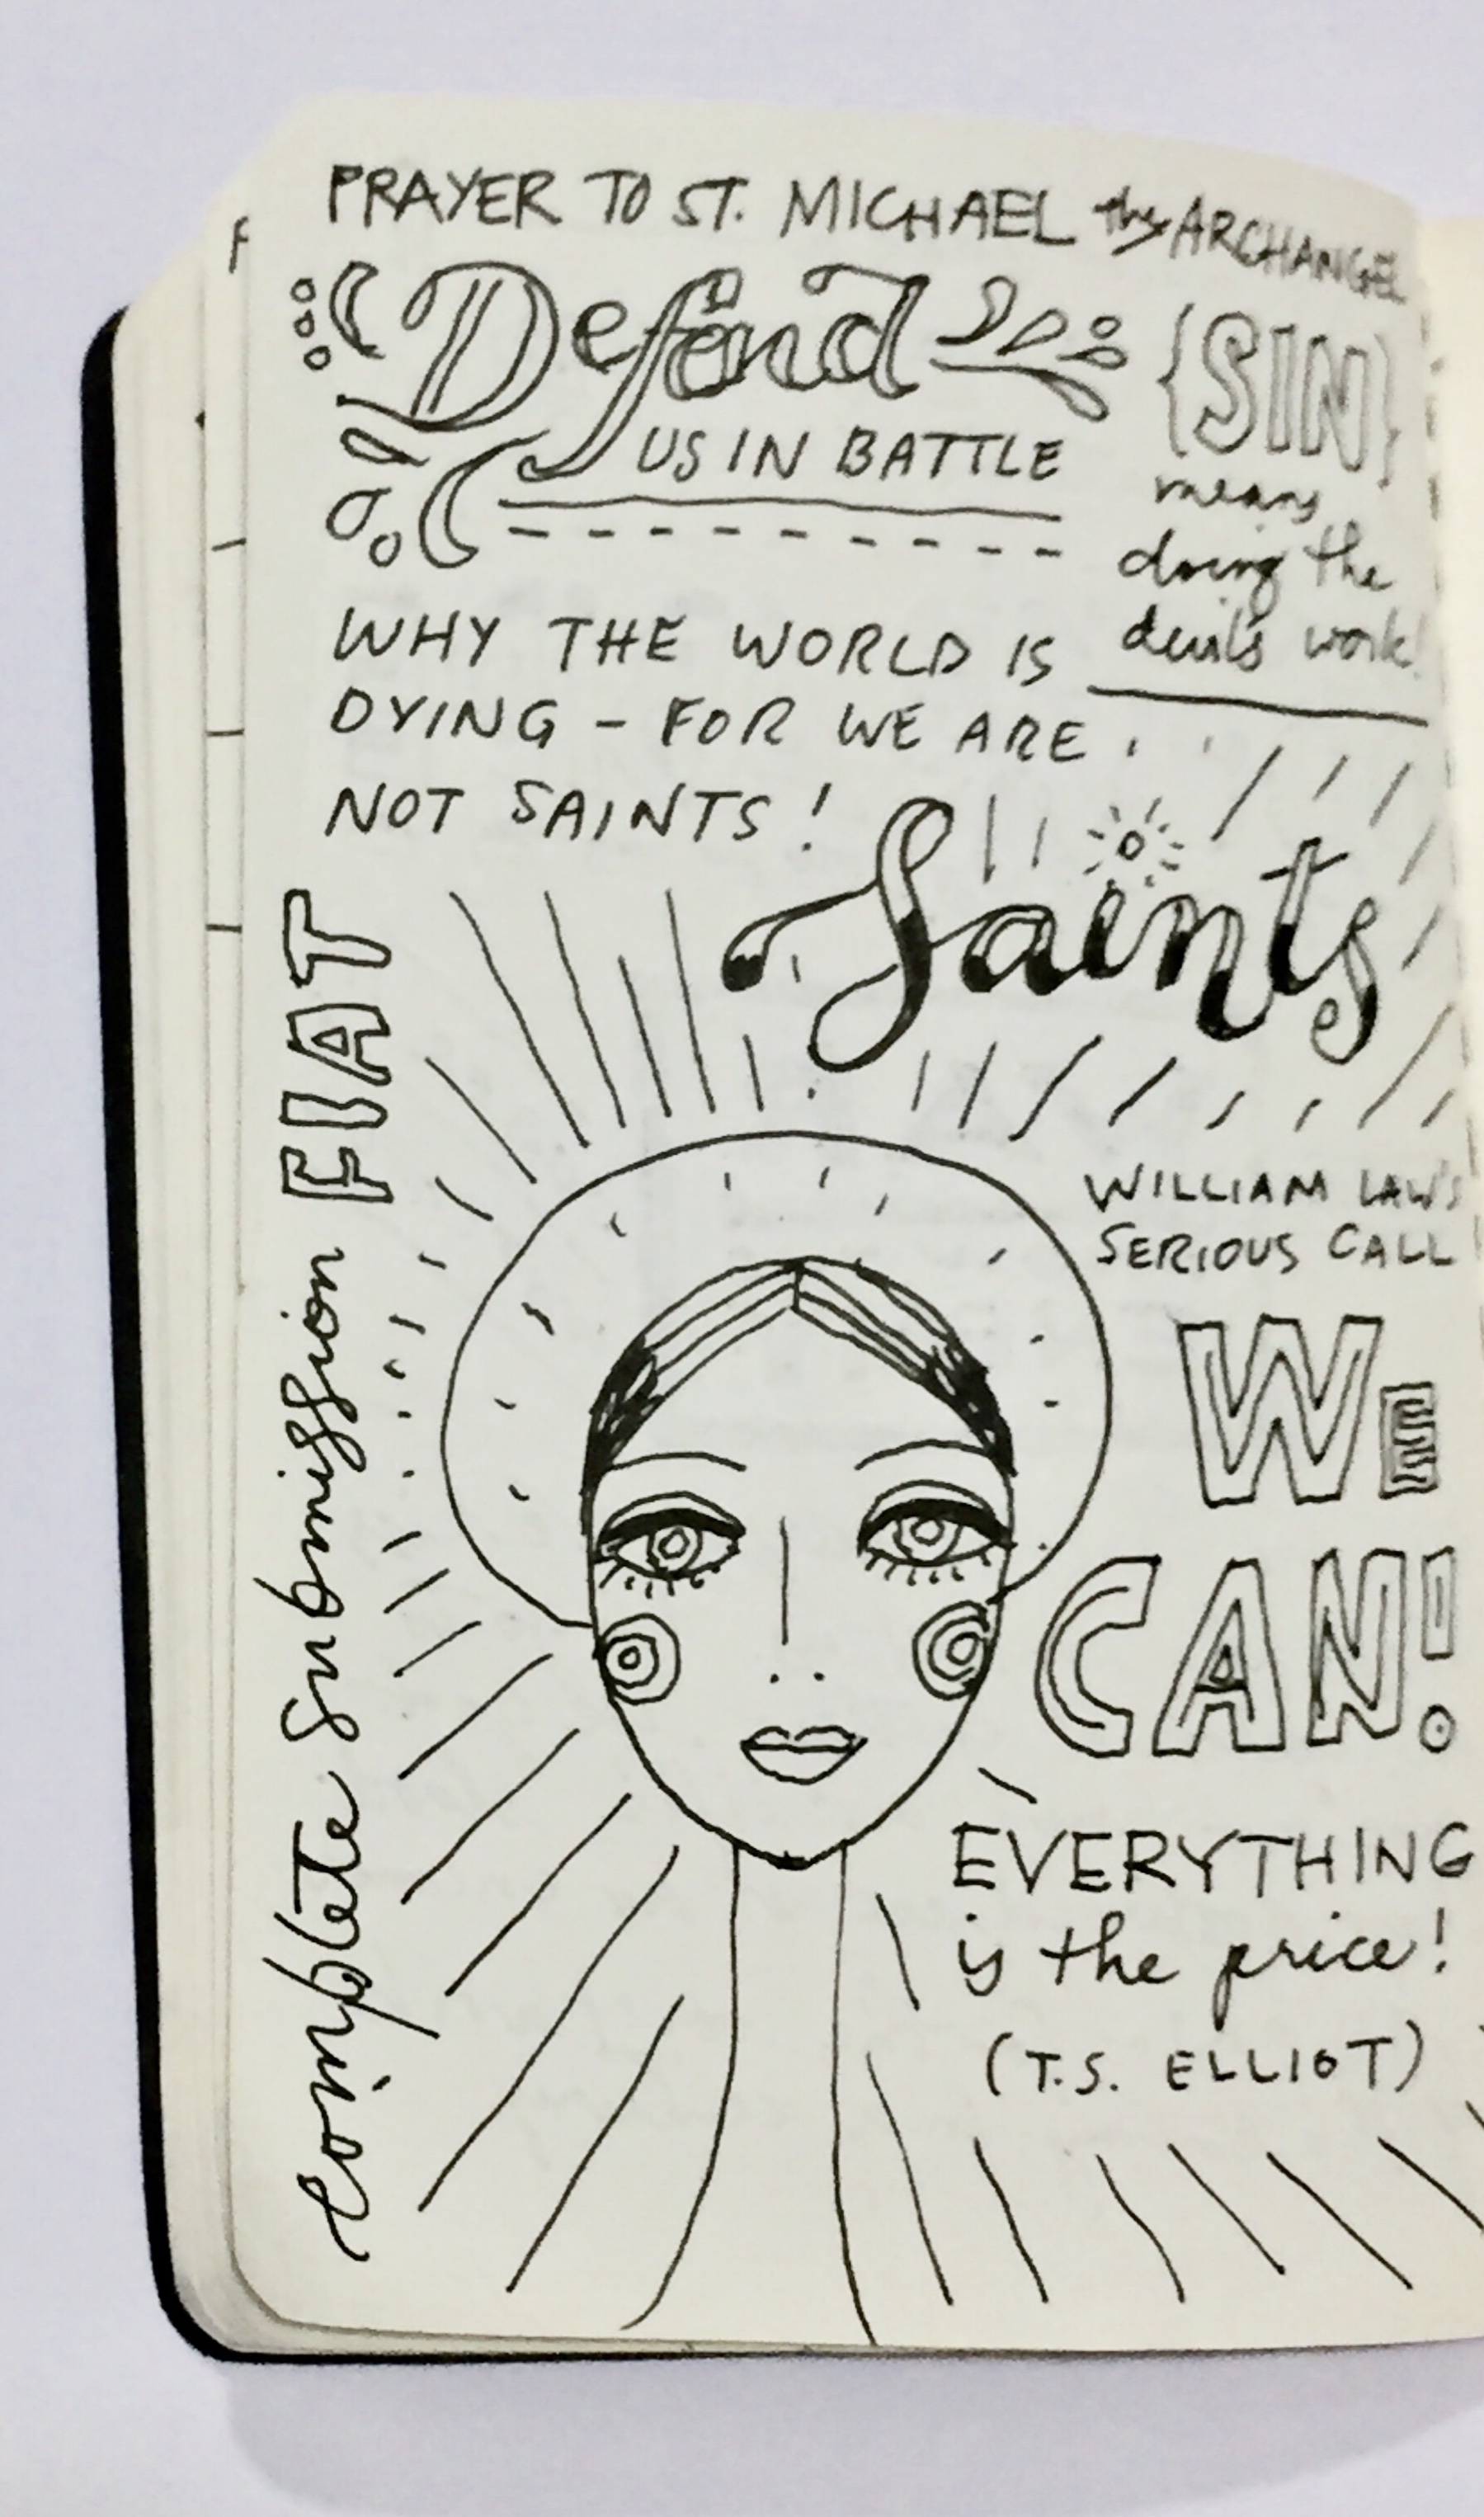 PRAYER TO ST. MICHAEL the ARCHANGEL
Defend
US IN BATTLE
{SIN}
means
doing the
devil's work!
WHY THE WORLD IS
DYING – FOR WE ARE
NOT SAINTS!
Saints
complete submission FIAT
WILLIAM LAW'S
SERIOUS CALL
WE
CAN!
EVERYTHING
is the price!
(T.S. ELLIOT)